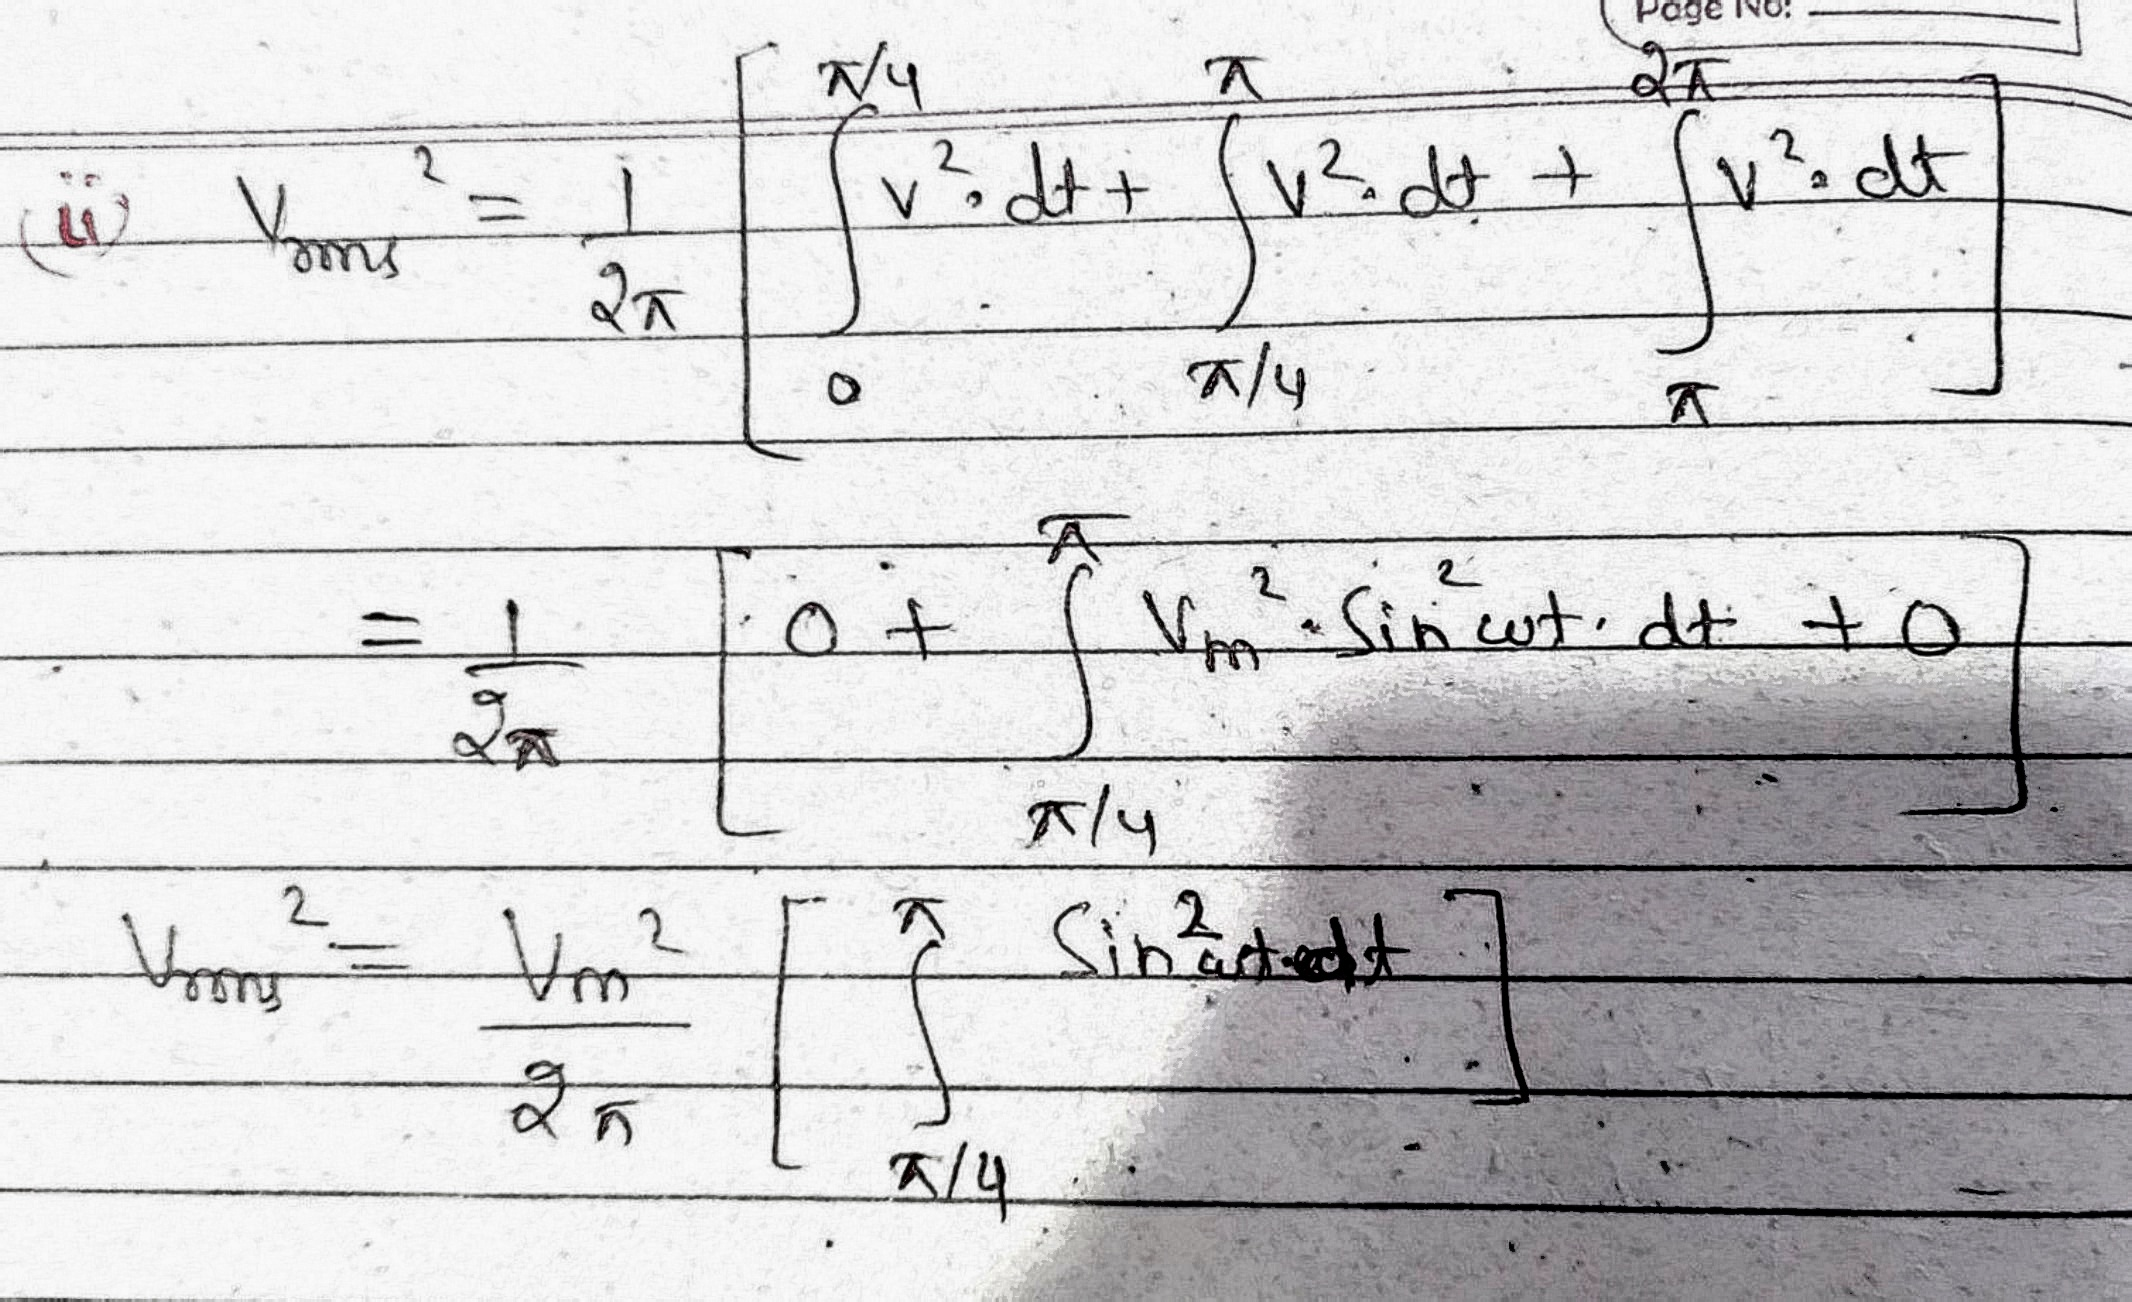 Page No:
(ii) Vrms² = 1/2π [ ∫₀^π/4 v²·dt + ∫π/4^π v²·dt + ∫π^2π v²·dt ]
= 1/2π [ 0 + ∫π/4^π Vm²·Sin²ωt·dt + 0 ]
Vrms² = Vm²/2π [ ∫π/4^π Sin²ωt·dt ]